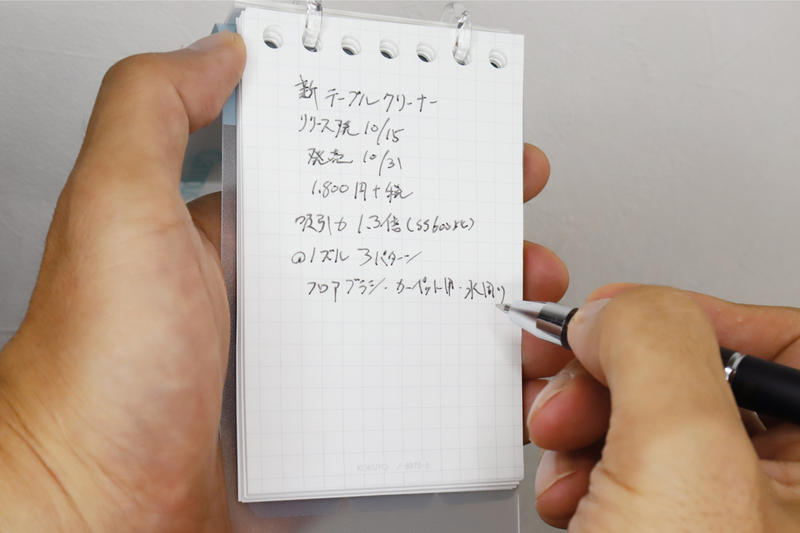 新テーブルクリーナー
リリース発 10/15
発売 10/31
1,800円+税
吸引力 1.3倍(SS600比)
@ノズル 3パターン
フロアブラシ・カーペット用・水回り
KOKUYO